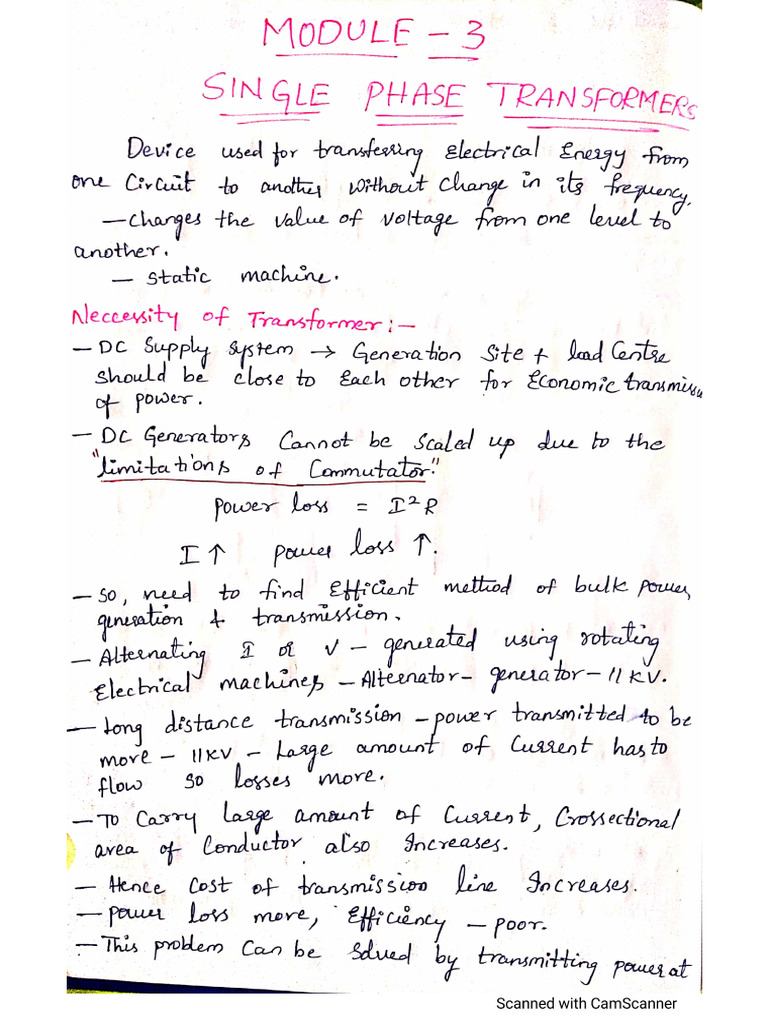 MODULE - 3
SINGLE PHASE TRANSFORMERS
Device used for transferring Electrical Energy from
one Circuit to another without change in its frequency.
- Changes the value of voltage from one level to
another.
- Static machine.
Neccessity of Transformer:-
- DC Supply system → Generation Site + load Centre
should be close to Each other for Economic transmiss
of power.
- DC Generators Cannot be Scaled up due to the
"limitations of Commutator."
Power loss = I²R
I ↑ power loss ↑.
- So, need to find Efficient method of bulk power
generation & transmission.
- Alternating I or V - generated using rotating
Electrical machines - Alternator - generator - 11 KV.
- Long distance transmission - power transmitted to be
more - 11KV - Large amount of Current has to
flow so losses more.
- To Carry large amount of Current, Crossectional
area of Conductor also Increases.
- Hence Cost of transmission line Increases.
- Power loss more, Efficiency - poor.
- This problem Can be Solved by transmitting power at
Scanned with CamScanner